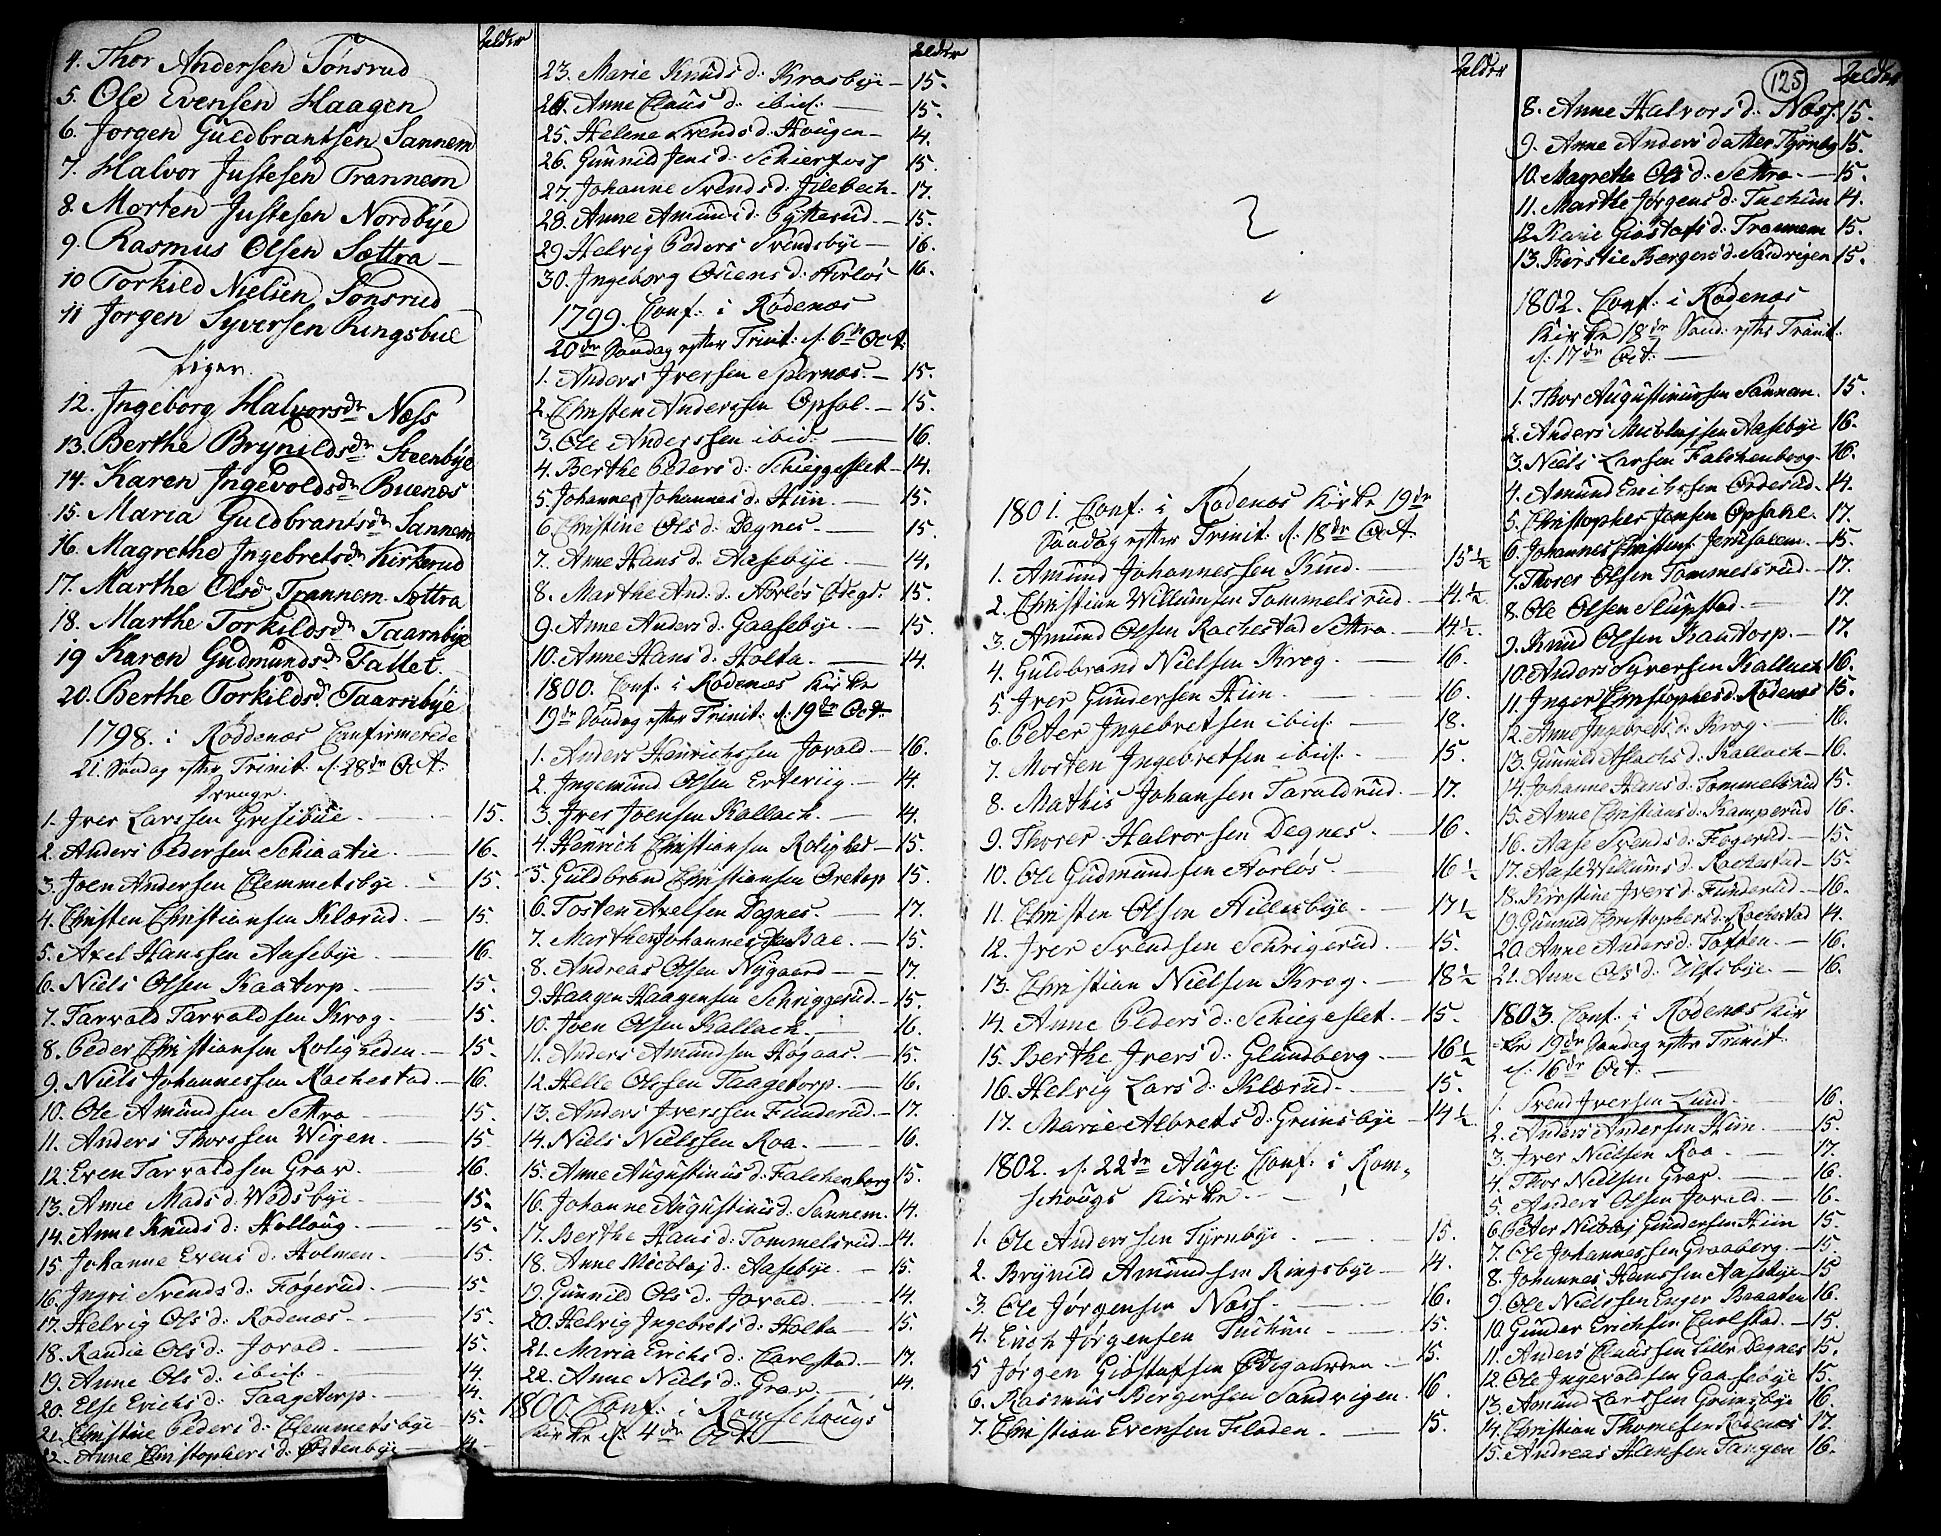 Alder
4. Thor Andersen Tønsrud
5. Ole Evensen Haagen
6. Jørgen Guldbrantsen Sannem
7. Halvor Justesen Trannem
8. Morten Justesen Nordbÿe
9. Rasmus Olsen Sættra
10 Torkild Nielsen Tonsrud
11 Jørgen Syversen Ringsbue
Piger.
12. Ingeborg Halvorsdr Næss
13. Berthe Brynildsdr Steenbÿe
14. Karen Ingevoldsdr Buenæs
15. Maria Guldbrantsdr Sannem
16. Magrethe Ingebretsdr Kirkerud
17. Marthe Olsd Trannem Sættra
18. Marthe Torkildsdr Taarnbÿe
19 Karen Gudmundsdr Fallet.
20. Berthe Torkildsd. Taarnbÿe
1798. i Røddenæs Confirmerede
21. Søndag efter Trinit: d. 28de Oct.
Drenge.
1. Iver Larssen Gresibue 15.
2. Anders Pedersen Schiaatie 16.
3. Joen Andersen Clemmetsbye 15.
4. Christen Christiansen Klærud. 15.
5. Axel Hanssen Aasebye 16.
6. Niels Olsen Kaatorp. 15.
7. Tarvald Tarvaldsen Krog. 15.
8. Peder Christiansen Roligheden. 15.
9. Niels Johannessen Rachestad 16.
10. Ole Amundsen Settra 15.
11. Anders Thorssen Wigen. 15.
12. Even Tarvaldsen Grav. 16.
13. Anne Madsd. Wodsbye. 15.
14. Anne Knudsd: Holloug. 15.
15 Johanne Evensd: Holmen. 15.
16. Ingri Svendsd: Fogerud. 15.
17. Helvig Olsd: Rødenæs. 15.
18. Randie Olsd: Jovald. 15.
19. Anne Olsd: ibid: 14.
20. Else Erichsd: Taagetorp. 14.
21. Christine Pedersd: Clemmetsbye 15.
22. Anne Christophersd: Østenbye 14.
Alder
23. Marie Knudsd: Krosbye 15.
24. Anne Clausd: ibid: 15.
25. Helene Svendsd: Hougen 14.
26. Gunnild Jensd: Schierfoss 15.
27. Johanne Svendsd: Jilebech 17.
28. Anne Amundsd: Pytterud. 15.
29. Helvig Peders Svendsbye 16.
30. Ingeborg Ouensd: Horløs 16.
1799. Conf: i Rødenæs
20de Søndag efter Trinit: d. 6te Oct.
1. Anders Iversen Spernæs. 15.
2. Christen Anderssen Opsal. 15.
3. Ole Anderssen ibid: 16.
4. Berthe Pedersd: Schieggeslet 14.
5. Johannes Johannesd: Hun. 15.
6. Christine Olsd: Degnes. 15.
7. Anne Hansd: Aasebye 14.
8. Marthe And:d: Norløs Ødegd: 15.
9. Anne Andersd: Gaasebye. 15.
10. Anne Hansd: Holta. 14.
1800. Conf: i Rødenæs Kirke
19de Søndag efter Trinit: d. 19de Oct.
1. Anders Henrichssen Jovald 16.
2. Ingemund Olsen Erteviig 14.
3. Iver Joensen Kallach. 14.
4. Henrich Christiansen Rolighed 15.
5. Guldbran Christiansen Oretop 15.
6. Tosten Axelsen Degnes. 17.
7. Marthe Johannesd Bae. 15.
8. Andreas Olsen Nygaard 17.
9. Haagen Haagensen Schriggerud. 15.
10. Joen Olsen Kallach. 16.
11. Anders Amundsen Høgaas. 15.
12. Helle Olossen Taagetorp. 16.
13. Anders Iverssen Funderud. 17.
14. Niels Nielssen Roa. 16.
15. Anne Augustinusd: Falchenborg 15.
16. Johanne Augustinusd: Sannem. 14.
17. Berthe Hansd: Tommelsrud 14.
18. Anne Nicolajd: Aasebye. 15.
19. Gunnild Olsd: Jovald. 14.
20. Helvig Ingebretsd: Holta 15.
21. Maria Erichsd: Carlstad. 17.
22. Anne Nielsd: Grav. 14.
1800. Conf: i Romschougs
Kirke d. 4de Oct.
Alder
1801. Conf: i Rødenæs Kirke 19de
Søndag efter Trinit: d. 18de Oct.
1. Amund Johannessen Kind. 15½
2. Christian Willumsen Tommelsrud 14½.
3. Amund Olsen Rachestad Settra. 14½.
4. Guldbrand Nielsen Krog. 16.
5. Iver Gundersen Hun. 16.
6. Peter Ingebretsen ibid: 18.
7. Morten Ingebretsen ibid: 15.
8. Mathis Johansen Taraldrud. 17.
9. Thorer Halvorsen Degnes. 16.
10. Ole Gudmundsen Horløs. 16½
11. Christen Olsen Hillesbye. 17½
12. Iver Svendsen Schrigerud. 15.
13. Christian Nielsen Krog. 18½
14. Anne Pedersd: Schiegeslet. 15.
15. Berthe Iversd: Glundberg. 16½
16. Helvig Larsd: Klærud. 15.
17. Marie Albretsd: Grimsbye 14½
1802. d. 22de Aug: Conf: i Rom,
schougs Kirke.
1. Ole Anderssen Tyrnbye. 15.
2. Brynild Amundsen Ringsbye 14.
3. Ole Jørgensen Næss. 16.
4. Erich Jørgensen Tuchun 15.
5 Jørgen Giøstafsen Ødegaarden 15.
6. Rasmus Bergersen Sandvigen. 16.
7. Christian Evensen Floden. 15.
125
Alder
8. Anne Halvorsd: Næss. 15.
9. Anne Andersdatter Tyrnbÿ 15.
10. Magrethe Olsd: Settra. 15.
11. Marthe Jørgensd: Tuchun 14.
12. Karie Giøstafsd: Trannem 15.
13. Kirstie Bergersd: Sandvigen 15.
1802. Conf: i Rødenæs
Kirke 18de Sønd: efter Trinit:
d. 17de Oct:
1. Thor Augustinussen Sannem. 15.
2. Anders Nicolajsen Aasebye 16.
3. Niels Larsen Falchenborg. 16.
4. Amund Erichsen Ørderud. 14.
5. Christopher Jonsen Opsahl. 17.
6. Johannes Christens: Jerusalem. 15.
7. Thorer Olsen Tommelsrud. 17.
8. Ole Olsen Slupstad. 17.
9. Knud Olsen Kaatorp. 17.
10. Anders Syversen Kallach 16.
11. Inger Christophersd: Rødenæs 15.
12. Anne Ingebretsd: Krog. 16.
13. Gunnild Aslachsd: Kallach 16.
14. Johanne Hansd: Tommelsrud 15.
15. Anne Christiansd: Kamperud 16.
16. Aase Svendsd: Fogerud. 15.
17. Aase Willumsd: Rachestad 15.
18. Kirstine Iversd: Funderud. 16.
19. Gunnild Christophersd: Rachestad 14.
20. Anne Andersd: Toften. 16.
21. Anne Olsd: Ulfsbye. 16.
1803. Conf: i Rødenæs Kir
ke 19de Søndag efter Trinit:
d. 16de Oct:
1. Svend Iversen Lund. 16.
2. Anders Andersen Hun. 15.
3. Iver Nielsen Roa 17.
4. Thor Nielsen Grav. 16.
5. Anders Olsen Jovald. 16.
6. Peter Nicolaj Gundersen Hun 15.
7. Ole Johannessen Graaberg. 15.
8. Johannes Hanssen Aasebye 15
9. Ole Nielssen Enger Braaten 16.
10. Gunder Erichsen Carlstad. 15.
11. Anders Claussen Lille Degnes 15.
12. Ole Ingevaldsen Gaasebye 15.
13. Amund Larssen Grimsbye 16.
14. Christian Thomesen Rødenæs 17.
15. Andreas Hansen Tangen 16.